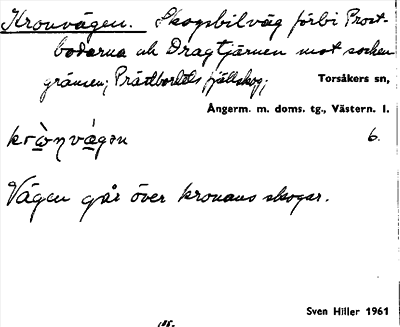 Kronvägen. Skogsbilväg förbi Prost-
bodarna och Dragtjärnen mot socken
gränsen; Prästbordets fjällskog; Torsåkers sn,
Ångerm. m. doms. tg., Västern. l.
krò̱nvä̀gən 6.
Vägen går över kronans skogar.
Sven Hiller 1961